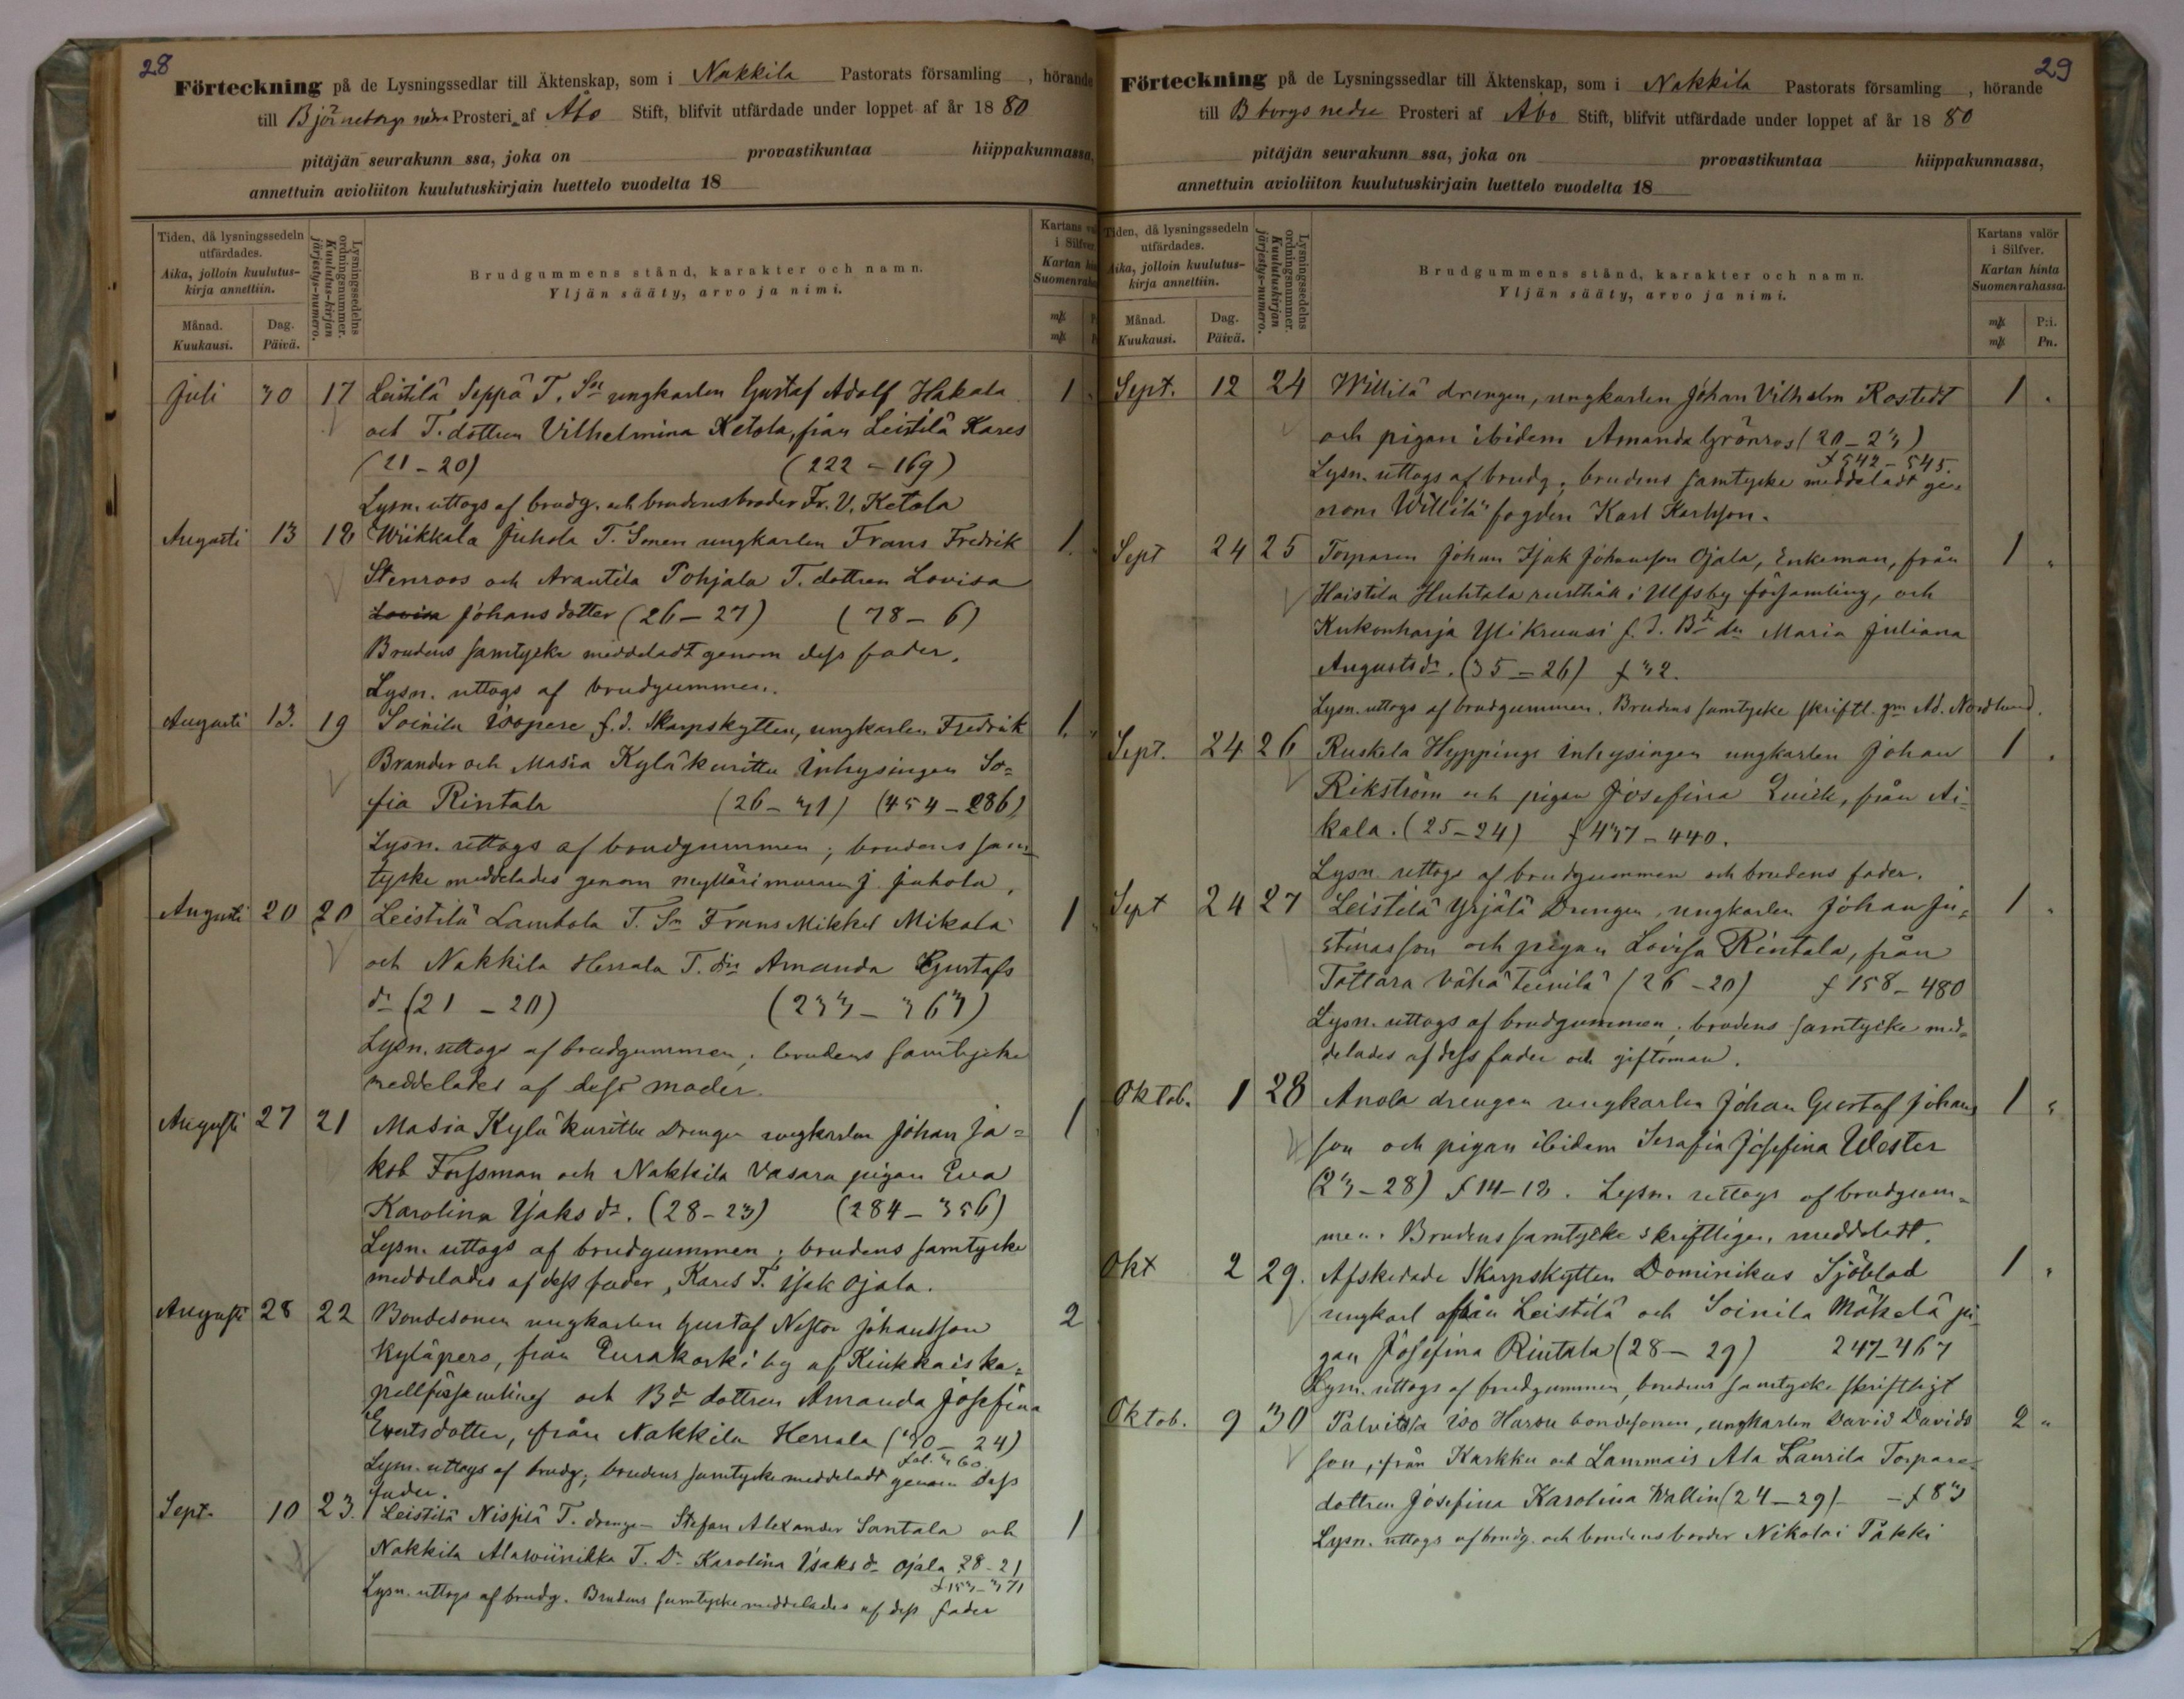 28
Förteckning på de Lysningssedlar till Äktenskap, som i Nakkila Pastorats församling , hörande
till Björneborgs nedre Prosteri af Åbo Stift, blifvit utfärdade under loppet af år 1880
pitäjän seurakunn ssa, joka on provastikuntaa hiippakunnassa,
annettuin avioliiton kuulutuskirjain luettelo vuodelta 18
Tiden, då lysningssedeln utfärdades.
Aika, jolloin kuulutus-kirja annettiin.
Månad. Kuukausi.
Dag. Päivä.
Lysningssedelns ordningsnummer.
Kuulutus-kirjan järjestys-numero.
Brudgummens stånd, karakter och namn.
Yljän sääty, arvo ja nimi.
Kartans val
i Silfver.
Kartan hin
Suomenraha
mk
mk
Juli 30 17 Leistilä Seppä T. Sn ungkarlen Gustaf Adolf Hakala 1
och T. dottren Vilhelmina Ketola, från Leistilä Kares
(21-20) (222-169)
Lysn. uttogs af brudg. och brudens broder Fr. V. Ketola
Augusti 13 18 Wiikkala Juhola T. Sonen ungkarlen Frans Fredrik 1.
Stenroos och Arantila Pohjala T. dottren Lovisa
Lovisa Johansdotter (26-27) (78-6)
Brudens samtycke meddeladt genom dess fader.
Lysn. uttogs af brudgummen.
Augusti 13. 19 Soinila Isopere f.d. Skarpskytten, ungkarlen Fredrik 1.
Brander och Masia Kyläkuritta Inhysingen So=
fia Rintala (26-31) (454-286)
Lysn. uttogs af brudgummen; brudens sam=
tycke meddelades genom myllärimuraren J. Juhola.
Augusti 20 20 Leistilä Lambola T. Sn Frans Mikkel Mikola 1
och Nakkila Herrala T. dn Amanda Gustafs
dr (21-20) (233-363)
Lysn. uttogs af brudgummen; brudens samtycke
meddelades af dess moder.
Augusti 27 21 Masia Kyläkuritta Drengen ungkarlen Johan Ja= 1
kob Forssman och Nakkila Vasara pigan Eva
Karolina Isaks dr. (28-23) (284-356)
Lysn. uttogs af brudgummen; brudens samtycke
meddelades af dess fader, Kares T. Isak Ojala.
Augusti 28 22 Bondesonen ungkarlen Gustaf Nestor Johansson 2
Kyläpere, från Eurakoski by af Kiukkais ka=
pellförsamling och Bd dottren Amanda Josefina
Evertsdotter, från Nakkila Herrala (30-24)
fol. 360.
Lysn. uttogs af brudg; brudens samtycke meddeladt genom dess
fader.
Sept. 10 23. Leistilä Nispiä T. drenge Stefan Alexander Santala och 1
Nakkila Alawiinikka T. Dr Karolina Isaks dr Ojala 28-21
f 153-371
Lysn. uttogs af brudg. Brudens samtycke meddelades af dess fader
29
Förteckning på de Lysningssedlar till Äktenskap, som i Nakkila Pastorats församling , hörande
till Bborgs nedre Prosteri af Åbo Stift, blifvit utfärdade under loppet af år 1880
pitäjän seurakunn ssa, joka on provastikuntaa hiippakunnassa,
annettuin avioliiton kuulutuskirjain luettelo vuodelta 18
Tiden, då lysningssedeln utfärdades.
Aika, jolloin kuulutus-kirja annettiin.
Månad. Kuukausi.
Dag. Päivä.
Lysningssedelns ordningsnummer.
Kuulutuskirjan järjestys-numero.
Brudgummens stånd, karakter och namn.
Yljän sääty, arvo ja nimi.
Kartans valör
i Silfver.
Kartan hinta
Suomenrahassa.
mk P:i.
mk Pn.
Sept. 12 24 Willilä drengen, ungkarlen Johan Vilhelm Rostedt 1 .
och pigan ibidem Amanda Grönros (20-23)
f 542-545.
Lysn. uttogs af brudg; brudens samtycke meddeladt ge=
nom Willilä fogden Karl Karlsson.
Sept 24 25 Torparen Johan Isak Johansson Ojala, Enkeman, från 1 "
Haistila Huhtala rusthåll i Ulfsby församling, och
Kukonharja Yli Kruusi f.d. Bde dn Maria Juliana
Augustsdr. (35-26) f 32.
Lysn. uttogs af brudgummen. Brudens samtycke skriftl. gm Ad. Nordlund.
Sept. 24 26 Ruskela Hyppings inhysingen ungkarlen Johan 1 .
Rikström och pigan Josefina Quick, från Ai=
kala. (25-24) f 437-440.
Lysn. uttogs af brudgummen och brudens fader.
Sept 24 27 Leistilä Yrjälä Drengen, ungkarlen Johan Ju= 1 "
stinasson och pigan Lovisa Rintala, från
Tattara Vähä Teinilä (26-20) f 158-480
Lysn. uttogs af brudgummen; brudens samtycke med=
delades af dess fader och giftoman.
Oktob. 1 28 Anola drengen ungkarlen Johan Gustaf Johans 1 "
son och pigan ibidem Serafia Josefina Wester
(23-28) f 14-18. Lysn. uttogs af brudgum=
men. Brudens samtycke skriftligen meddeladt.
Okt 2 29. Afskedade Skarpskytten Dominikus Sjöblad 1 "
ungkarl från Leistilä och Soinila Mäkelä pi=
gan Josefina Rintala (28-29) 247-467
Lysn. uttogs af brudgummen, brudens samtycke skriftligt
Oktob. 9 30 Palvitsla Iso Harou bondesonen, ungkarlen David Davids 2 "
son, från Karkku och Lammais Ala Laurila Torpare=
dottren Josefina Karolina Wallin (24-29) - f 83
Lysn. uttogs af brudg. och brudens broder Nikolai Påkki